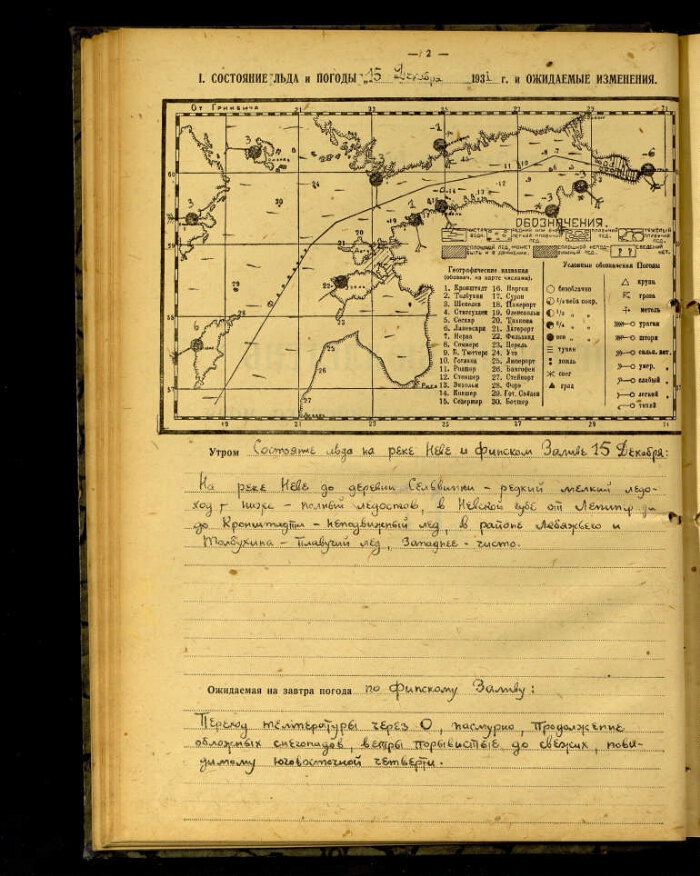 — 2 —
I. СОСТОЯНИЕ ЛЬДА и ПОГОДЫ „15 Декабря 1931 г. и ОЖИДАЕМЫЕ ИЗМЕНЕНИЯ.
От Гринвича
ОБОЗНАЧЕНИЯ.
Географические названия
(обознач. на карте числами).
1. Кронштадт 16. Нарген
2. Толбухин 17. Суроп
3. Шепелев 18. Пакерорт
4. Стирсудден 19. Оденсхольм
5. Сескар 20. Тахкона
6. Лавенсари 21. Дагерорт
7. Нерва 22. Фильзанд
8. Соммерс 23. Церель
9. Б. Тютерс 24. Утэ
10. Гогланд 25. Люзерорт
11. Родшер 26. Бакгофен
12. Стеншер 27. Стейнорт
13. Экхольм 28. Форэ
14. Кокшер 29. Гот. Сандэн
15. Седершер 30. Богшер
Условные обозначения Погоды
безоблачно
туман
дождь
снег
град
крупа
гроза
метель
ураган
шторм
сильн. вет.
умер. „
слабый „
легкий „
тихий „
Рига
Утром Состояние льда на реке Неве и финском Заливе 15 Декабря:
На реке Неве до деревни – редкий мелкий ледо-
ход, ниже – полный ледостав, в Невской губе от
до Кронштадта – неподвижный лед, в районе Лебяжьего и
Толбухина – плавучий лед, Западнее – чисто.
Ожидаемая на завтра погода по финскому Заливу:
Переход температуры через О, пасмурно, продолжение
обложных снегопадов, ветры порывистые до свежих, пови-
димому юговосточной четверти.